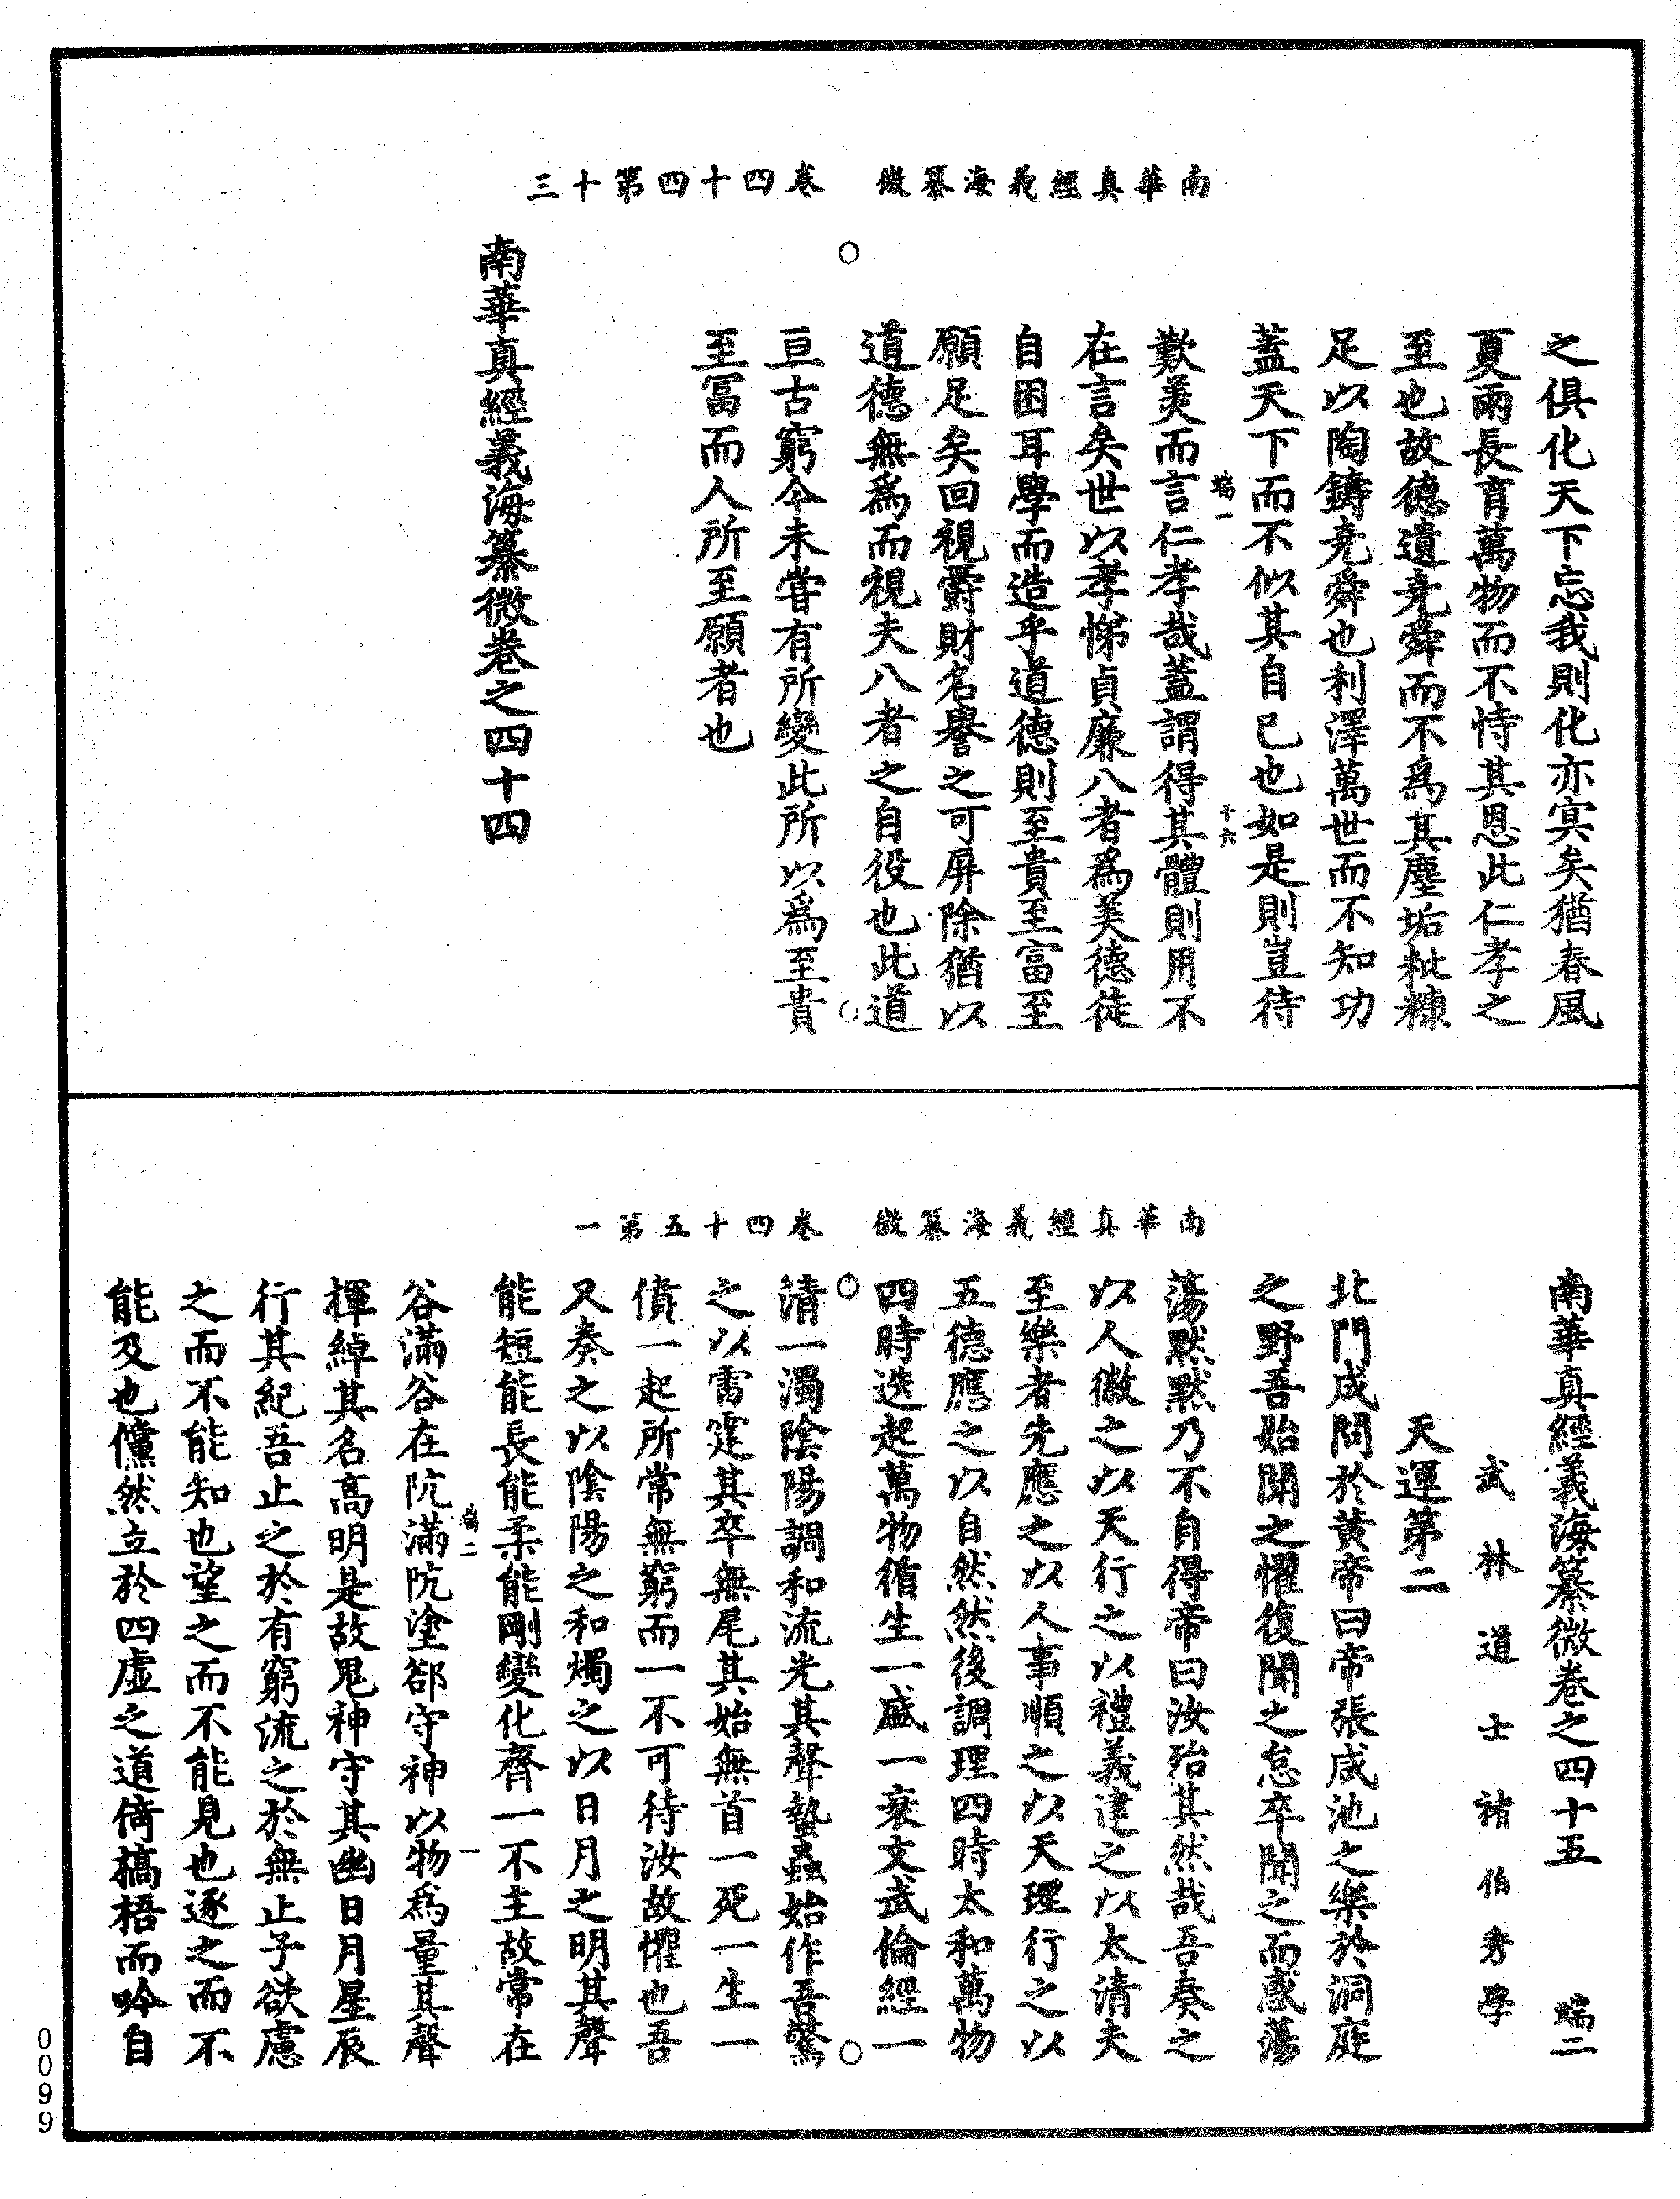 南華真經義海纂微　卷四十四第十三
之俱化天下忘我則化亦㝠矣猶春風
夏雨長育萬物而不恃其恩此仁孝之
至也故德遺堯舜而不為其塵垢粃糠
足以陶鑄堯舜也利澤萬世而不知功
蓋天下而不似其自己也如是則豈待
歎羙而言仁孝哉蓋謂得其體則用不
在言矣世以孝悌貞廉八者為美德徒
自困耳學而造乎道德則至貴至富至
願足矣回視爵財名譽之可屏除猶以
道德無為而視夫八者之自役也此道
亘古窮今未嘗有所變此所以為至貴
至冨而人所至願者也
南華真經義海纂微卷之四十四
端一
十六
南華真經義海纂微　卷四十五第一
南華真經義海纂微卷之四十五　端二
武林道士褚伯秀學
天運第二
北門成問於黃帝曰帝張咸池之樂於洞庭
之野吾始聞之懼復聞之怠卒聞之而惑蕩
蕩默默乃不自得帝曰汝殆其然哉吾奏之
以人徵之以天行之以禮義建之以太清夫
至樂者先應之以人事順之以天理行之以
五德應之以自然然後調理四時太和萬物
四時迭起萬物循生一盛一衰文武倫經一
清一濁陰陽調和流光其聲蟄蟲始作吾驚
之以雷霆其卒無尾其始無首一死一生一
僨一起所常無窮而一不可待汝故懼也吾
又奏之以陰陽之和燭之以日月之明其聲
能短能長能柔能剛變化齊一不主故常在
谷滿谷在阬滿阬塗郤守神以物為量其聲
揮綽其名高明是故鬼神守其幽日月星辰
行其紀吾止之於有窮流之於無止子欲慮
之而不能知也望之而不能見也逐之而不
能及也儻然立於四虛之道倚槁梧而吟自
端二
一
0099